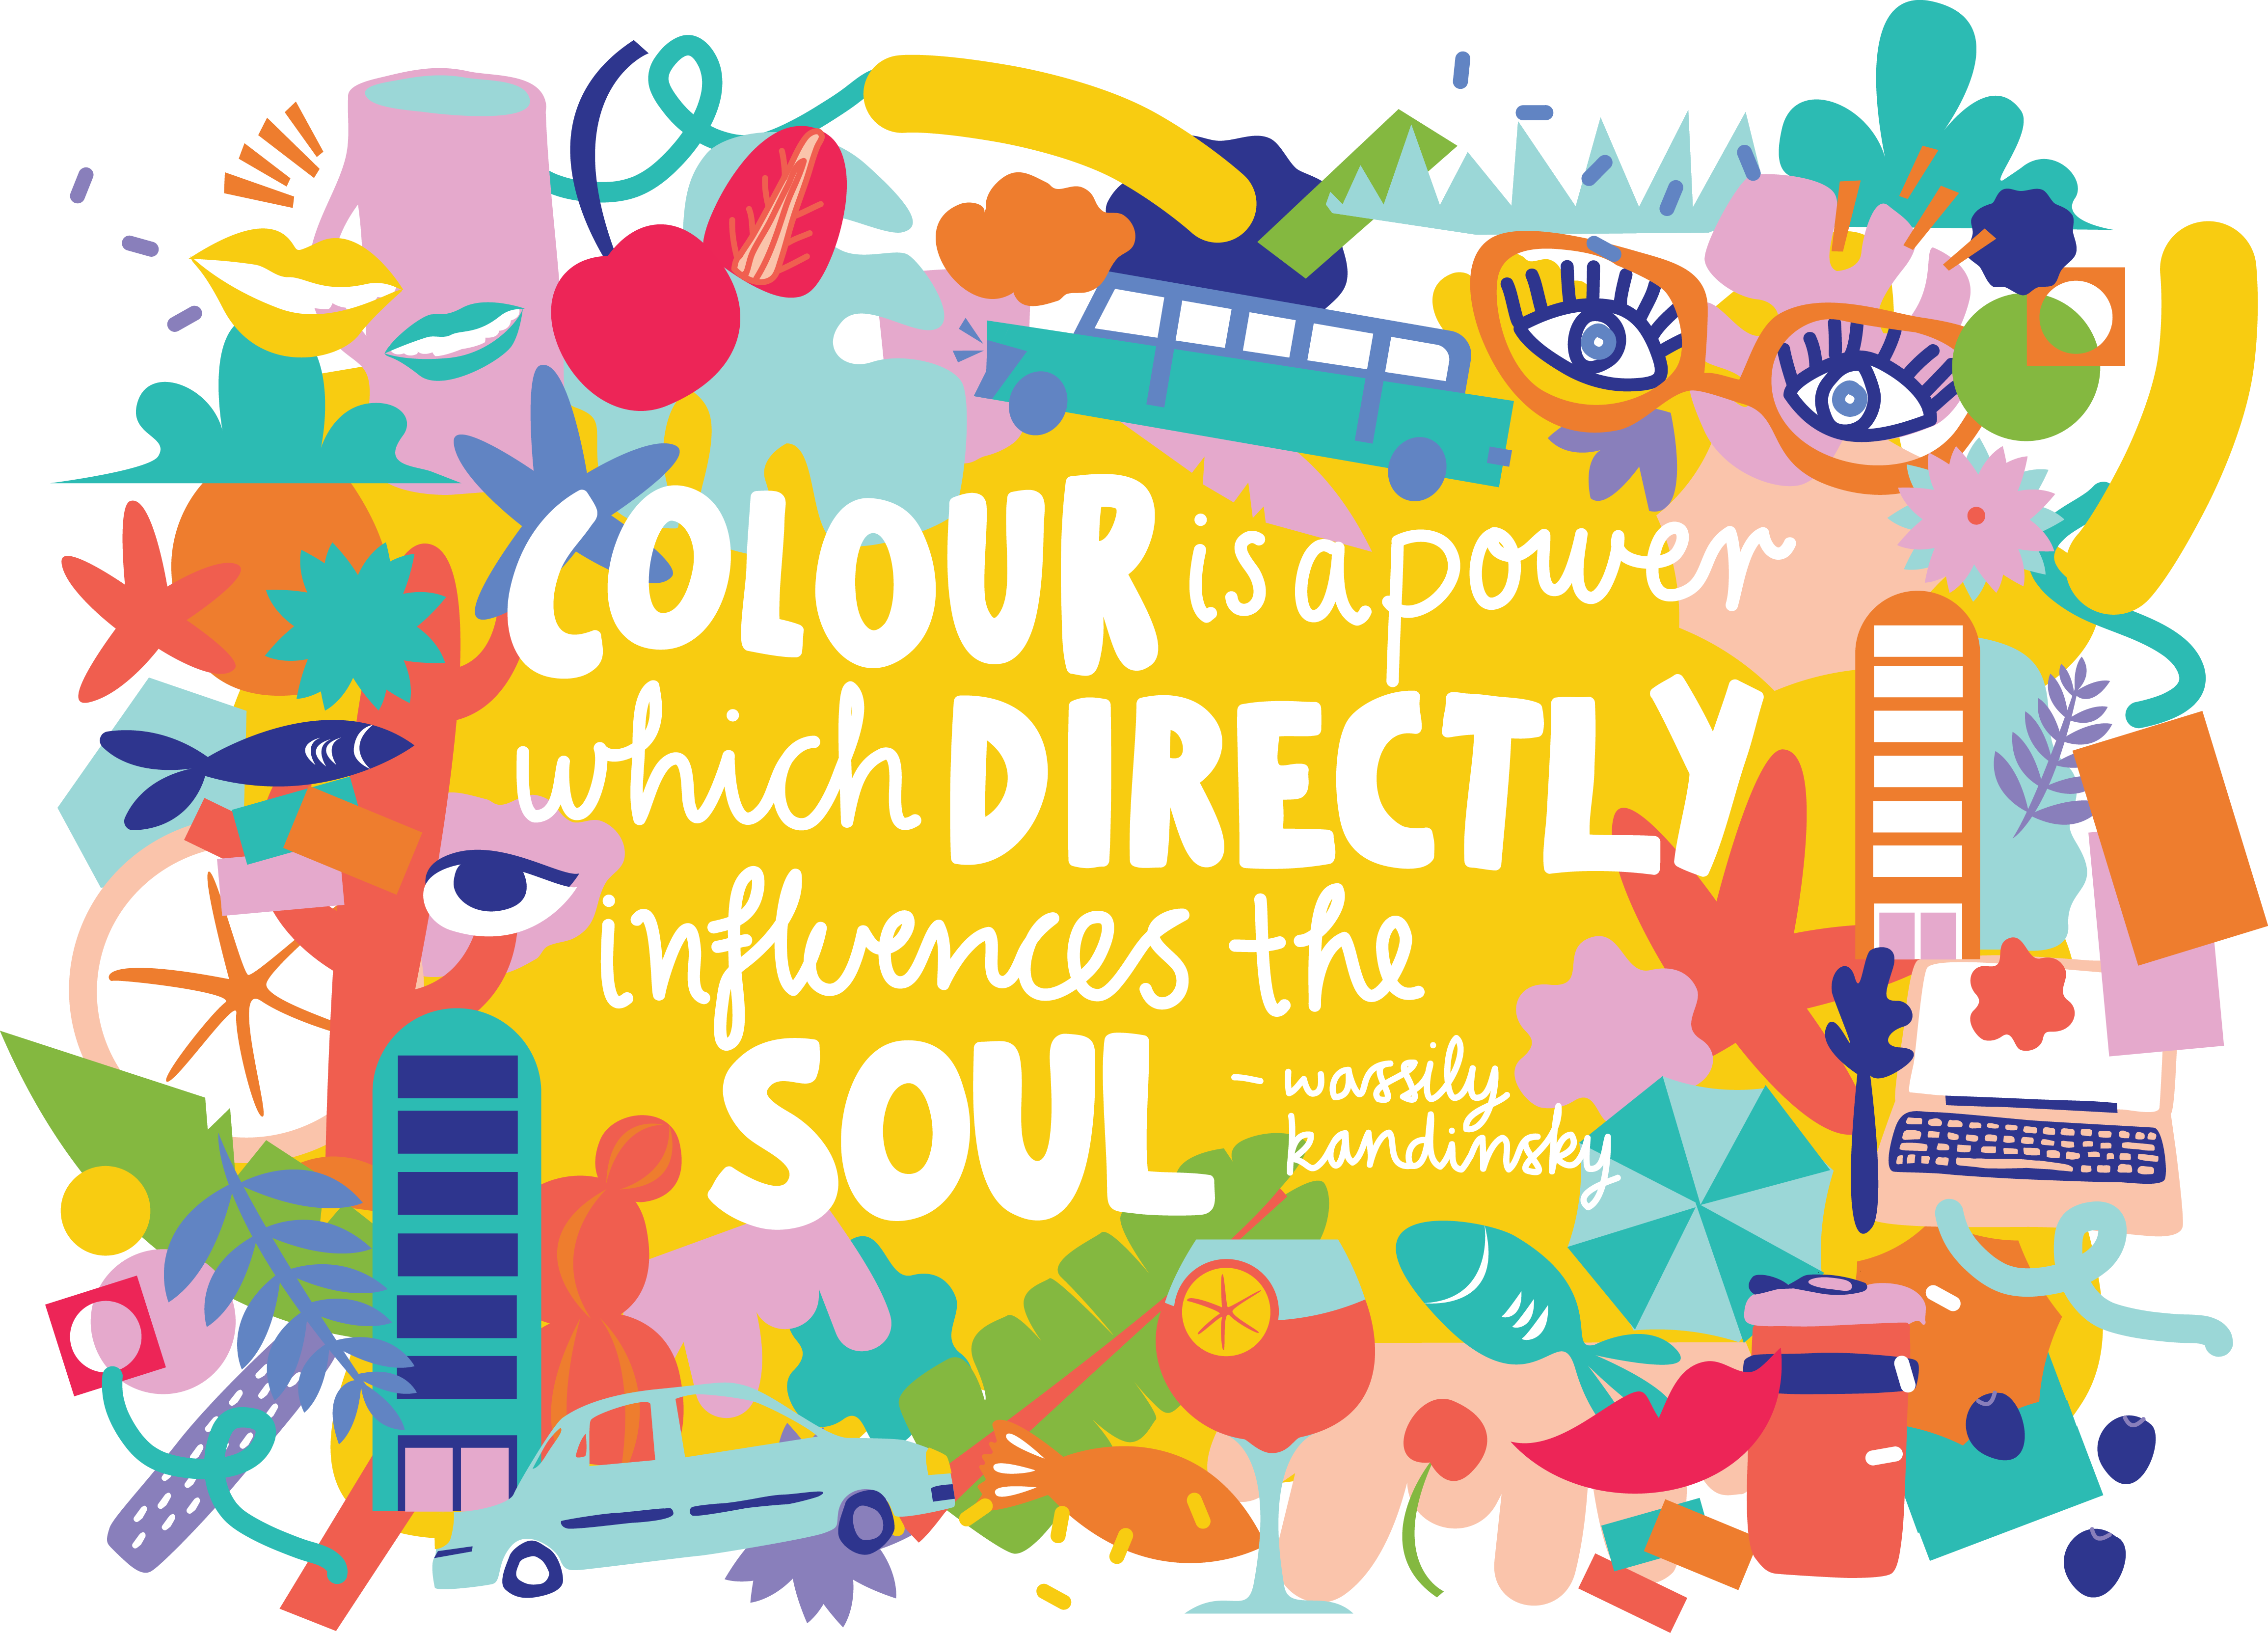 COLOUR is a power
which DIRECTLY
influences the
SOUL
- wassily
kandinsky